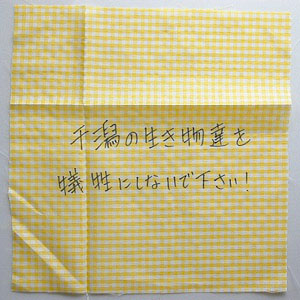 干潟の生き物達を
犠牲にしないで下さい!